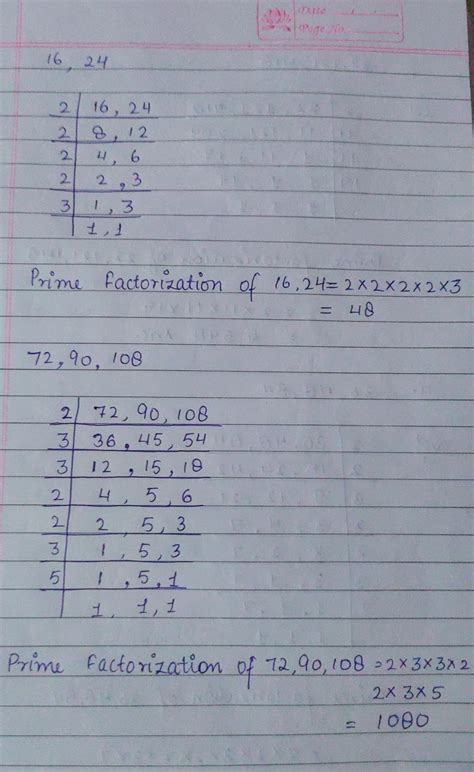 Date
Page No.
16, 24
2 | 16, 24
2 | 8, 12
2 | 4, 6
2 | 2, 3
3 | 1, 3
1, 1
Prime factorization of 16, 24 = 2×2×2×2×3
= 48
72, 90, 108
2 | 72, 90, 108
3 | 36, 45, 54
3 | 12, 15, 18
2 | 4, 5, 6
2 | 2, 5, 3
3 | 1, 5, 3
5 | 1, 5, 1
1, 1, 1
Prime factorization of 72, 90, 108 = 2×3×3×2
2×3×5
= 1080